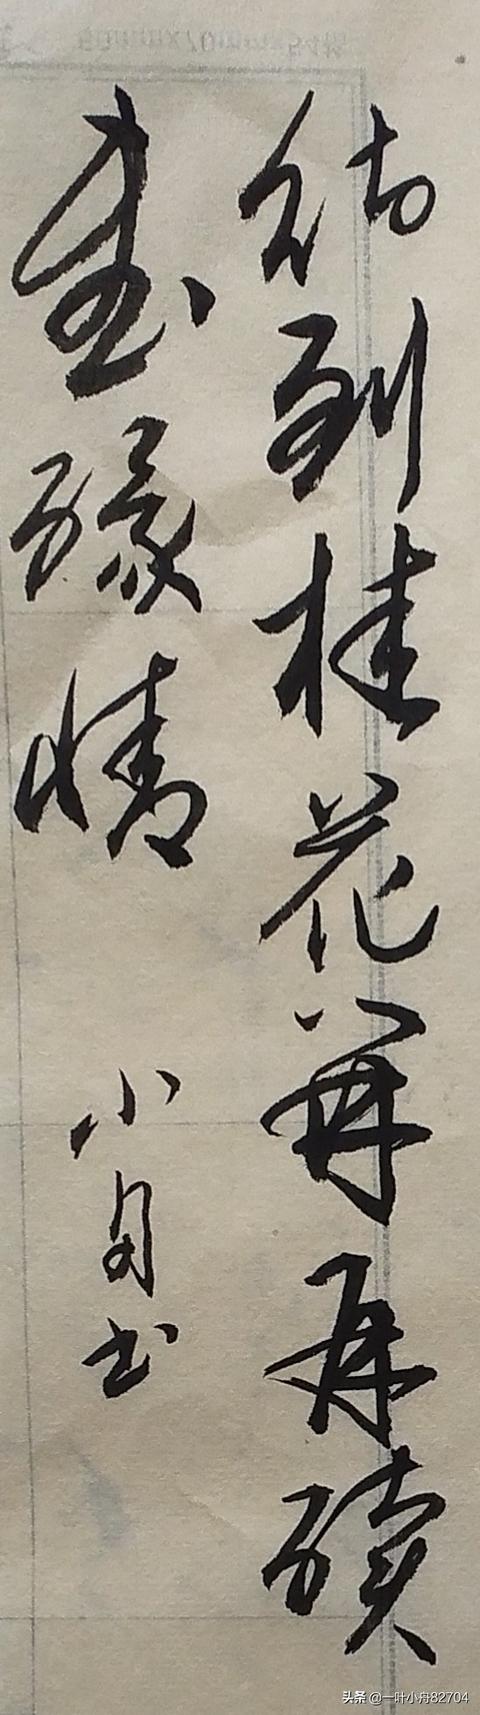 待到桂花開再續
緣情
小舟书
头条 @一叶小舟82704